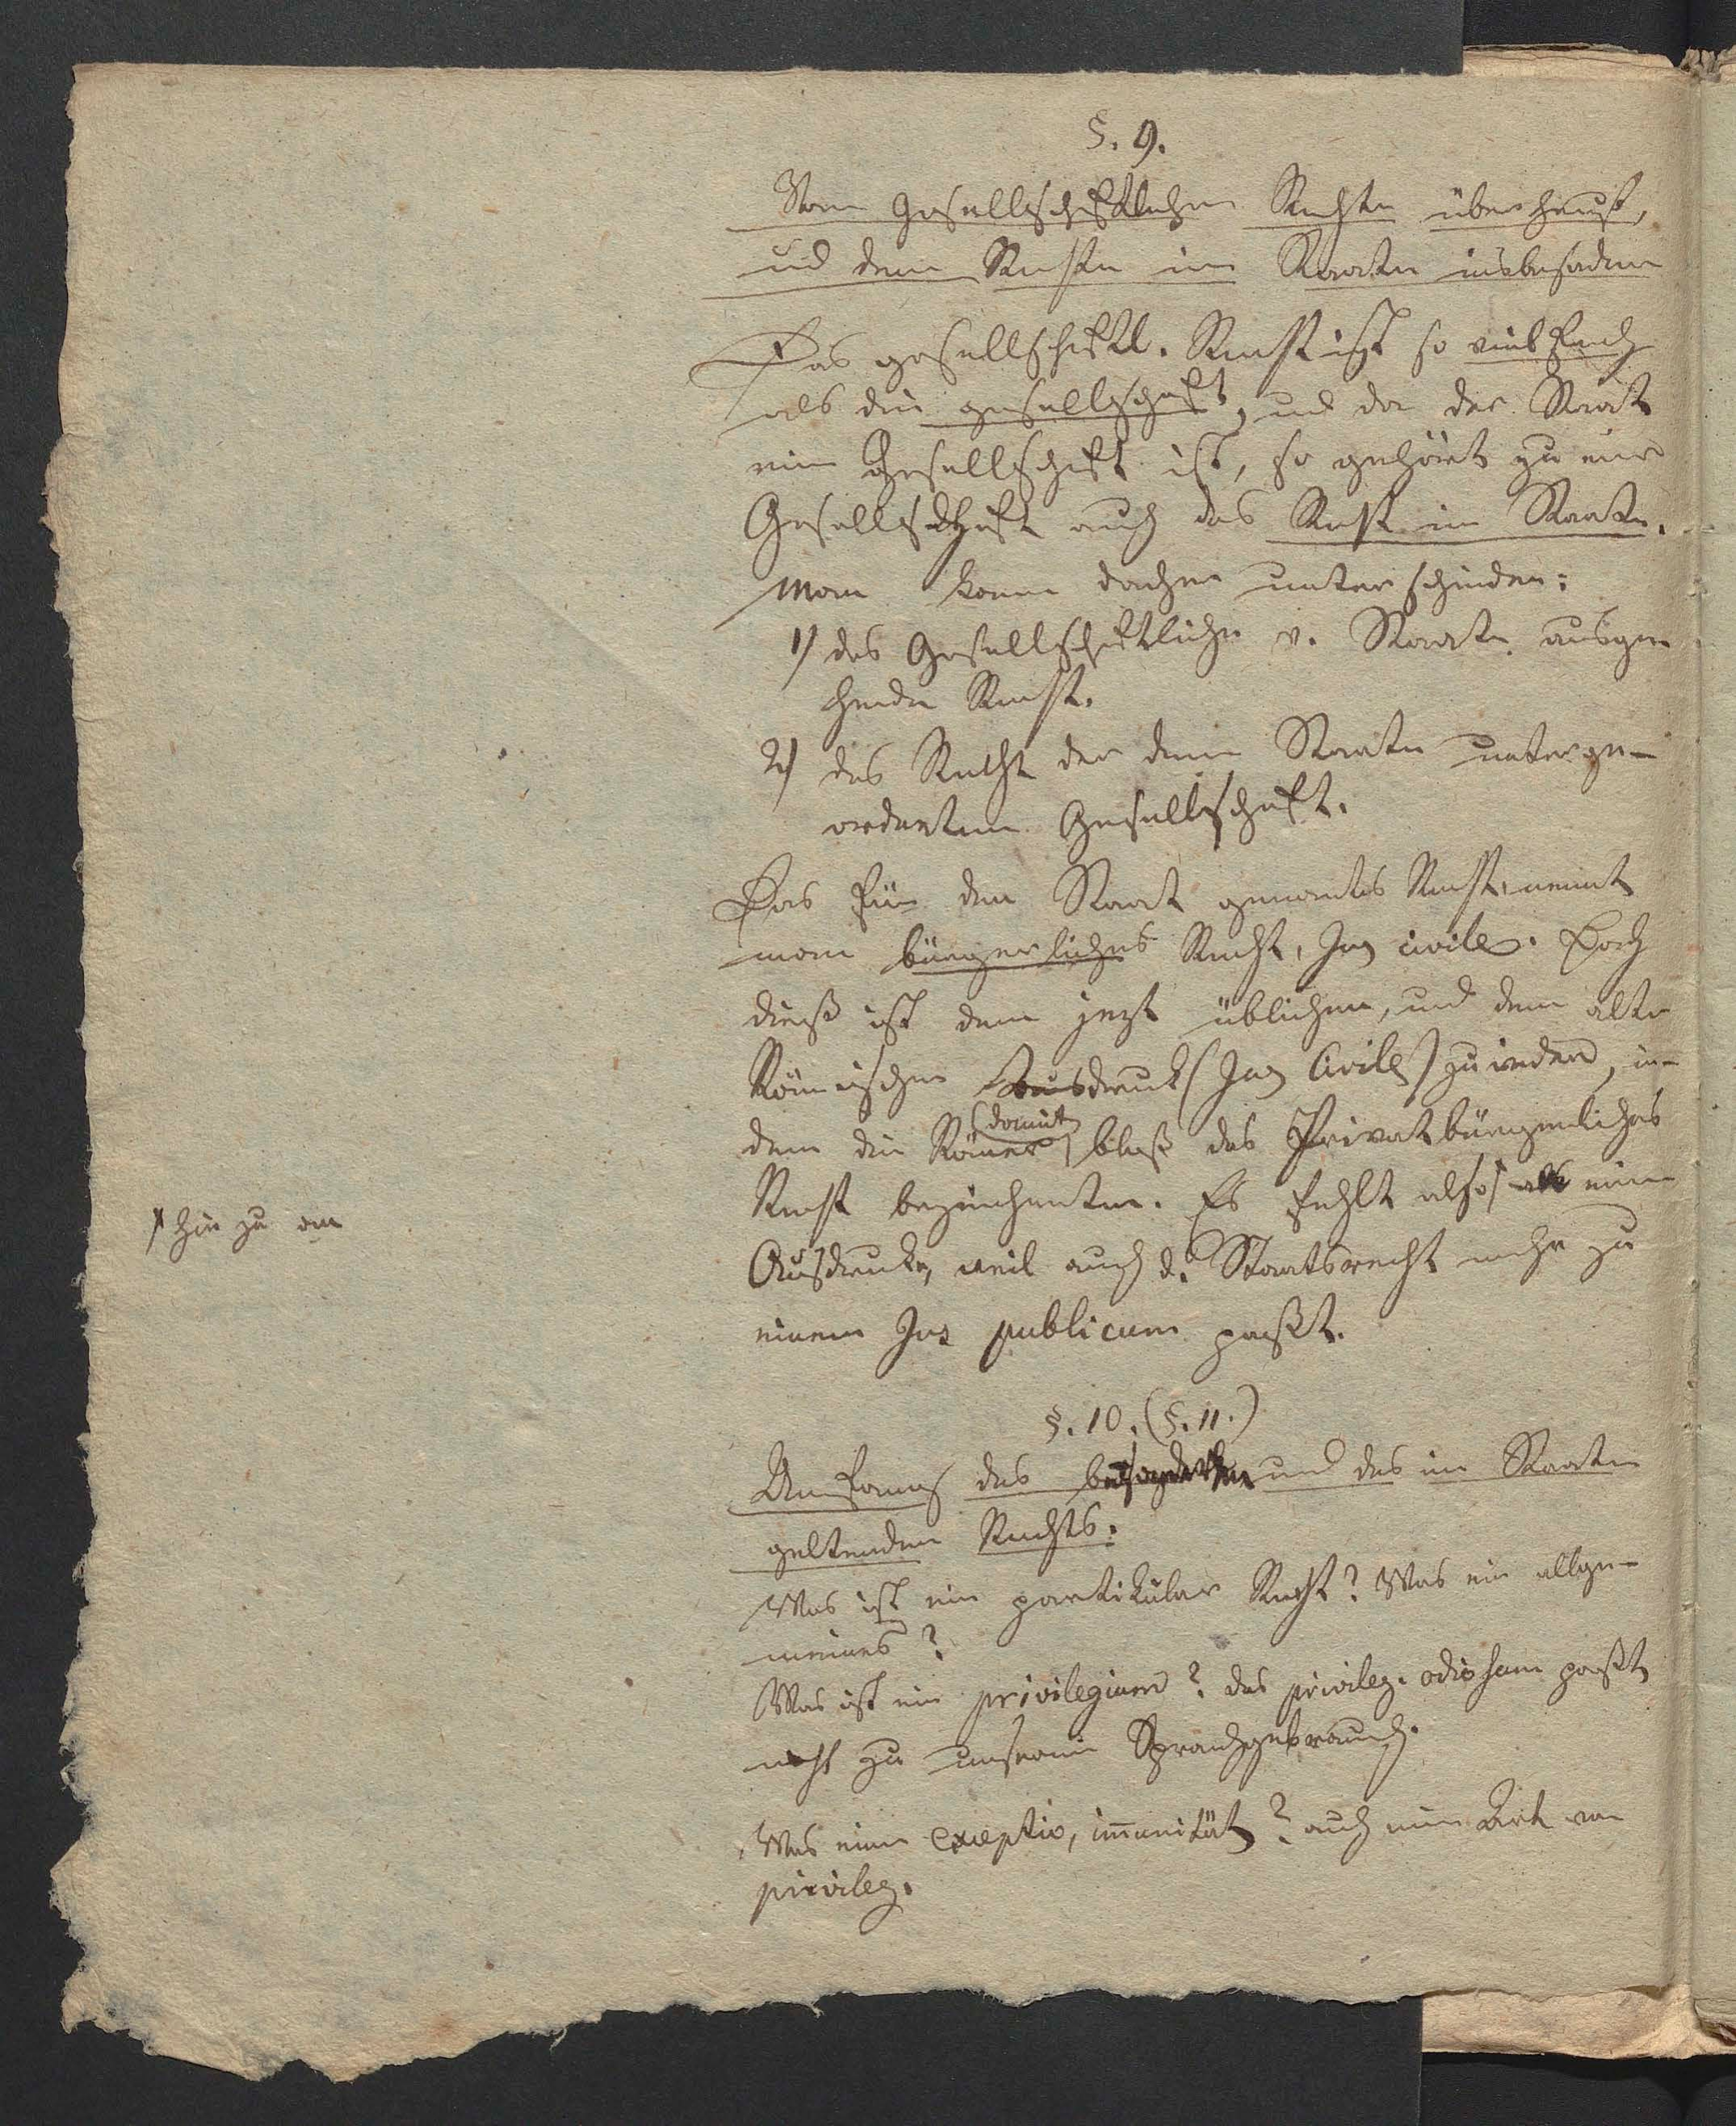 §. 9.
Vom Gesellschaftlichen Rechte überhaupt,
und dem Rechte im Staate insbesondere
Das gesellschaftl. Recht ist so vielfach
als die gesellschaft, und da der Staat
eine Gesellschaft ist, so gehört zu einer
Gesellschaft auch das Recht im Staate.
Man kann daher unterscheiden:
1) das Gesellschaftliche v. Staate ausge-
hende Recht.
2) das Recht der dem Staate unterge-
ordneten Gesellschaft.
Das für den Staat genantes Recht, nennt
man bürgerliches Recht, Jus civile. Doch
dieß ist dem jezt üblichen, und dem alten
Römischen Ausdruck (Jus Civile) zuwider, in-
dem die Römer damit bloß das Privatbürgerliches
Recht bezeichneten. Es fehlt also an einem
* hie zu an
Ausdrucke, weil auch d. Staatsrecht mehr zu
einem Jus publicum paßt.
§. 10. (§. 11.)
Umfang des besonderen und des im Staate
geltenden Rechts.
Was ist ein partikular Recht? Was ein allge-
meines?
Was ist ein privilegium? das privileg. odiosum paßt
nicht zu unserm Sprachgebrauch.
Was eine exceptio, im̅unität? auch eine Art von
privileg.